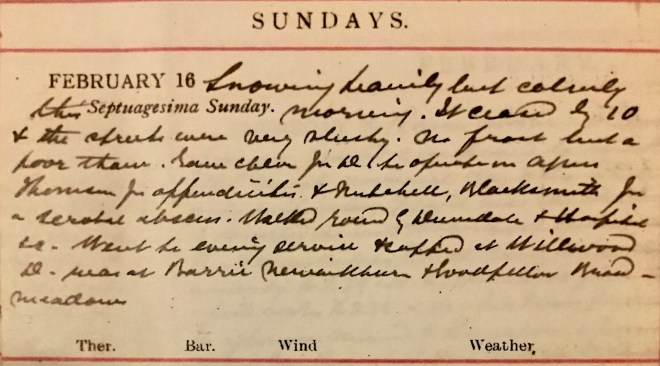 SUNDAYS.
FEBRUARY 16 Snowing heavily but calmly
this Septuagesima Sunday. morning. It ceased by 10
& the streets were very slushy. No frost but a
poor thaw. Gave for D. to operate on
Thomson for appendicitis & Mitchell, Blacksmith for
a abscess. Walked round by & Hospital
&c. Went to evening service & supped at Willwood
D. was at Barrie & Goodfellow Broad-
meadows
Ther. Bar. Wind Weather.